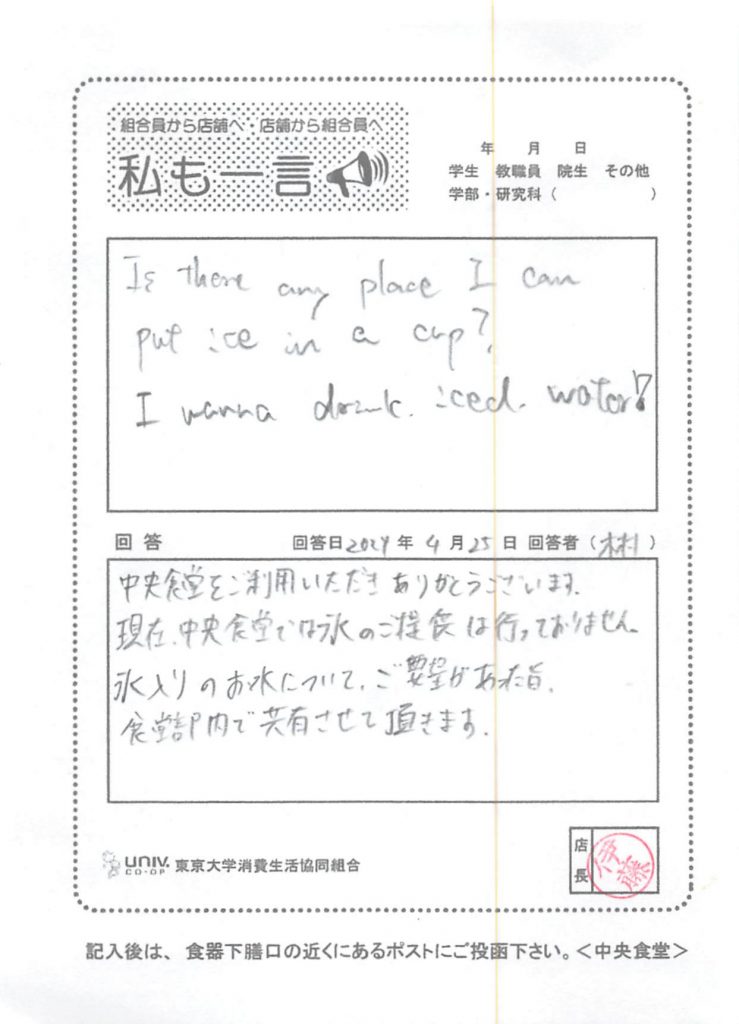 組合員から店舗へ・店舗から組合員へ
私も一言
年 月 日
学生 教職員 院生 その他
学部・研究科（ ）
Is there any place I can
put ice in a cup?
I wanna drink. iced. water!?
回答 回答日2024年4月25日 回答者（木村）
中央食堂をご利用いただきありがとうございます.
現在、中央食堂では氷のご提食は行っておりません。
氷入りのお水について、ご要望があった旨、
食堂部内で共有させて頂きます.
UNIV. CO-OP 東京大学消費生活協同組合
店長 伊藤
記入後は、食器下膳口の近くにあるポストにご投函下さい。＜中央食堂＞